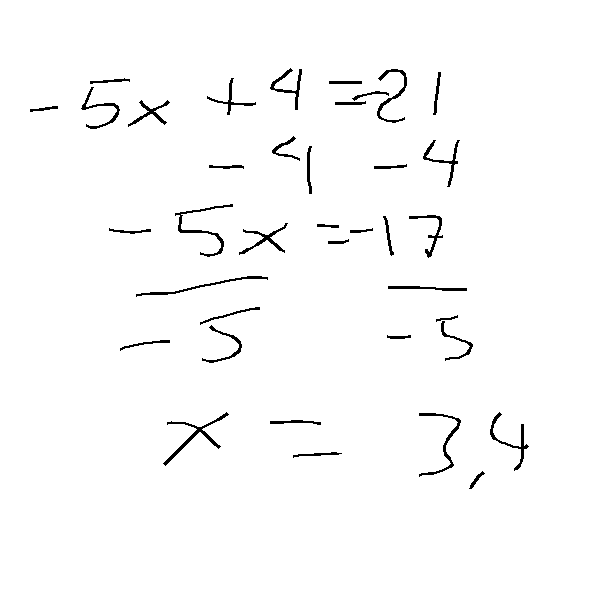 -5x + 4 = -21
- 4 - 4
-5x = -17
-5 -5
x = 3,4